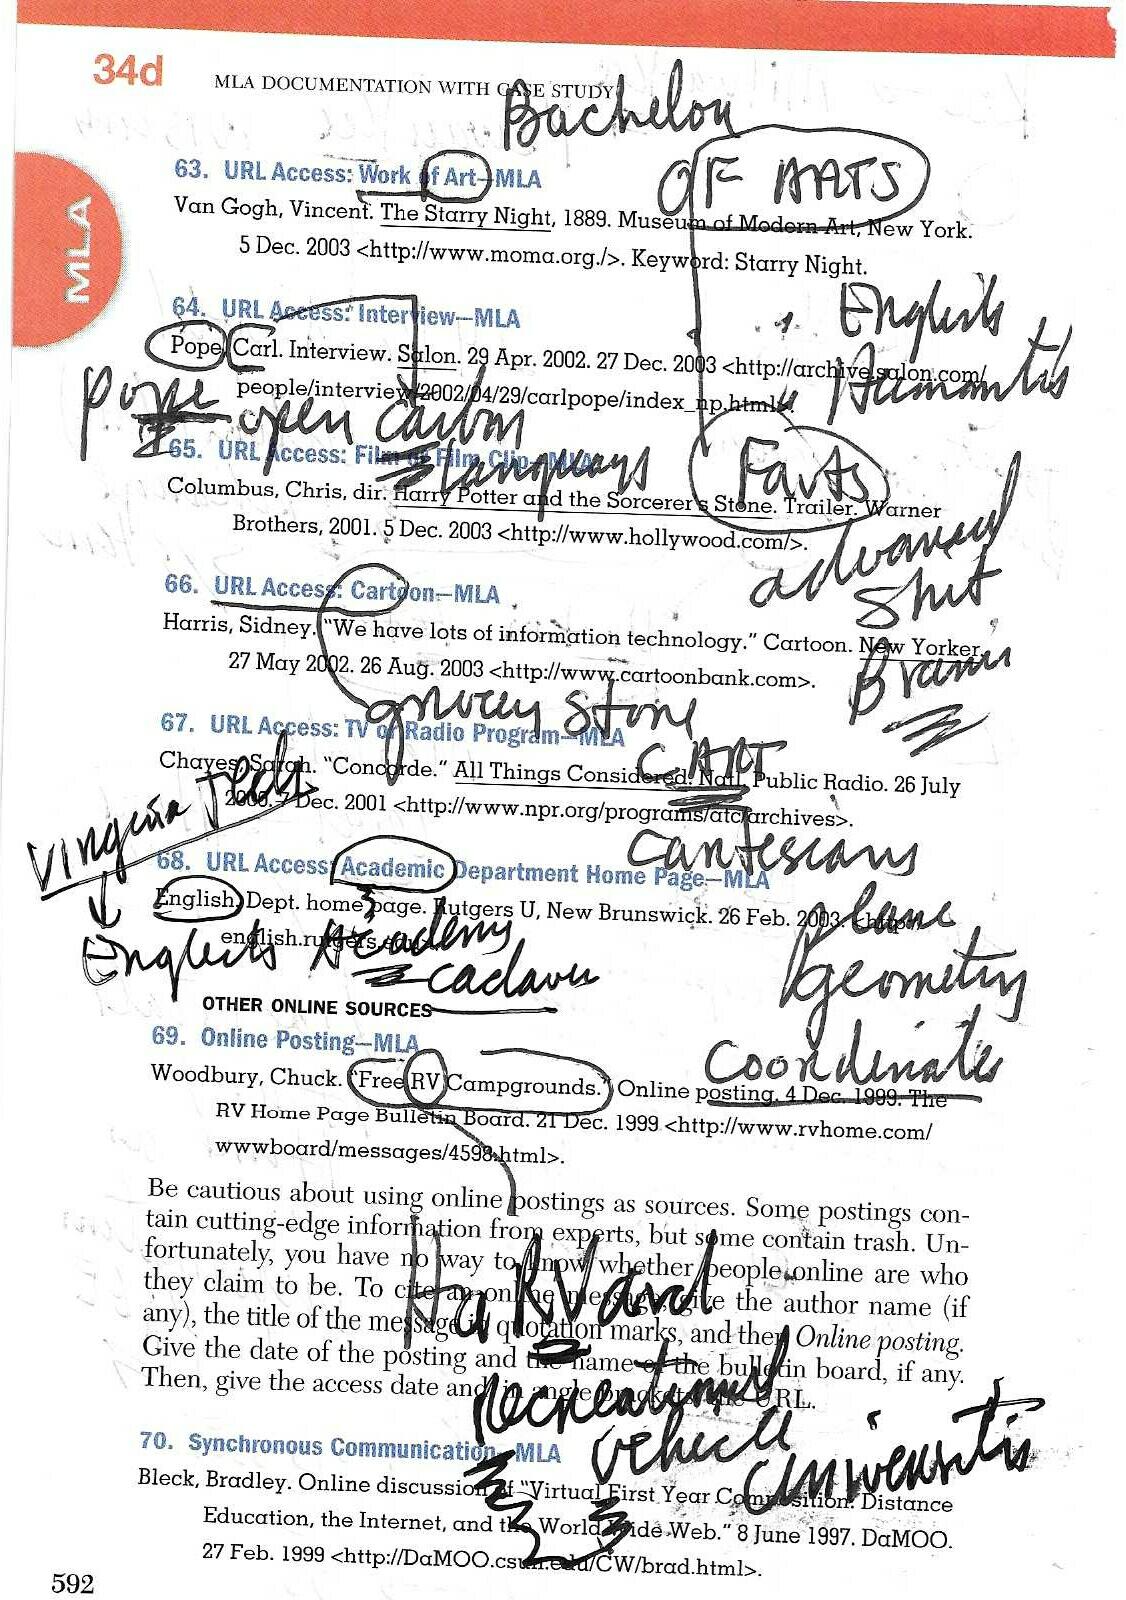 34d
MLA DOCUMENTATION WITH CASE STUDY
Bachelor
OF ARTS
MLA
63. URL Access: Work of Art—MLA
Van Gogh, Vincent. The Starry Night, 1889. Museum of Modern Art, New York.
5 Dec. 2003 <http://www.moma.org./>. Keyword: Starry Night.
64. URL Access: Interview—MLA
Pope, Carl. Interview. Salon. 29 Apr. 2002. 27 Dec. 2003 <http://archive.salon.com/
people/interview/2002/04/29/carlpope/index_np.html>.
Pope open Carbon
languays
Farts
65. URL Access: Film or Film Clip—MLA
Columbus, Chris, dir. Harry Potter and the Sorcerer's Stone. Trailer. Warner
Brothers, 2001. 5 Dec. 2003 <http://www.hollywood.com/>.
advanced
shit
66. URL Access: Cartoon—MLA
Harris, Sidney. "We have lots of information technology." Cartoon. New Yorker.
27 May 2002. 26 Aug. 2003 <http://www.cartoonbank.com>.
grocery store
CART
67. URL Access: TV or Radio Program—MLA
Chayes, Sarah. "Concorde." All Things Considered. Natl. Public Radio. 26 July
2000. 7 Dec. 2001 <http://www.npr.org/programs/atc/archives>.
Virginia Tech
Cartesians
plane
geometry
Coordinates
68. URL Access: Academic Department Home Page—MLA
English Dept. home page. Rutgers U, New Brunswick. 26 Feb. 2003. <http://
english.rutgers.edu
Academy
cadaver
OTHER ONLINE SOURCES
69. Online Posting—MLA
Woodbury, Chuck. "Free RV Campgrounds." Online posting. 4 Dec. 1999. The
RV Home Page Bulletin Board. 21 Dec. 1999 <http://www.rvhome.com/
wwwboard/messages/4598.html>.
Be cautious about using online postings as sources. Some postings con-
tain cutting-edge information from experts, but some contain trash. Un-
fortunately, you have no way to know whether people online are who
they claim to be. To cite an online message, give the author name (if
any), the title of the message in quotation marks, and then Online posting.
Give the date of the posting and the name of the bulletin board, if any.
Then, give the access date and, in angle brackets, the URL.
HaRVard
Recreational
vehicle
70. Synchronous Communication—MLA
Bleck, Bradley. Online discussion of "Virtual First Year Composition: Distance
Education, the Internet, and the World Wide Web." 8 June 1997. DaMOO.
27 Feb. 1999 <http://DaMOO.csun.edu/CW/brad.html>.
592